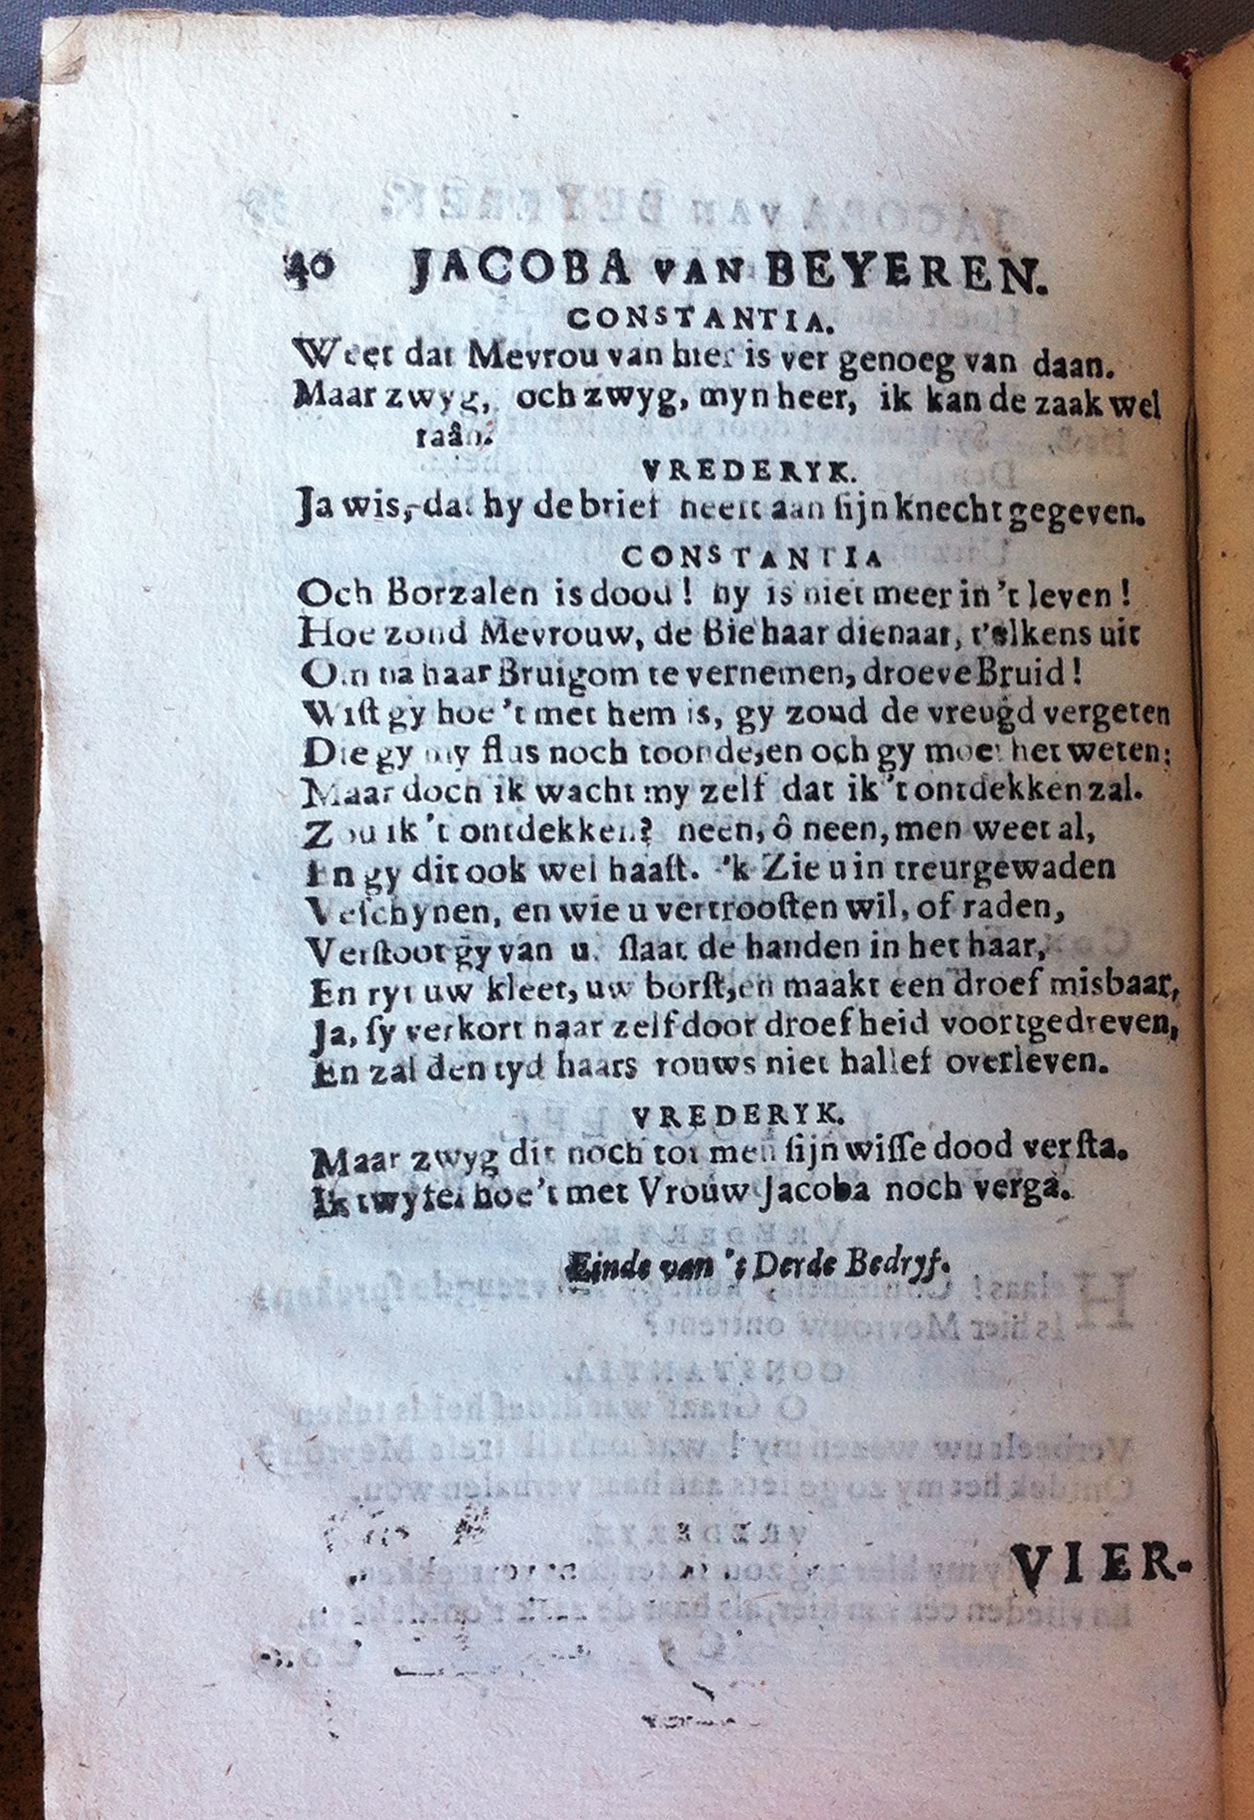 40 JACOBA VAN BEYEREN.
CONSTANTIA.
Weet dat Mevrou van hier is ver genoeg van daan.
Maar zwyg, och zwyg, myn heer, ik kan de zaak wel
raân.
VREDERYK.
Ja wis, dat hy de brief heeft aan ſijn knecht gegeven.
CONSTANTIA
Och Borzalen is dood! hy is niet meer in 't leven!
Hoe zond Mevrouw, de Bie haar dienaar, t'elkens uit
Om na haar Bruigom te vernemen, droeve Bruid!
Wiſt gy hoe 't met hem is, gy zoud de vreugd vergeten
Die gy my flus noch toonde, en och gy moet het weten;
Maar doch ik wacht my zelf dat ik 't ontdekken zal.
Zou ik 't ontdekken? neen, ô neen, men weet al,
En gy dit ook wel haaſt. 'k Zie u in treurgewaden
Veſchynen, en wie u vertrooſten wil, of raden,
Verſtoot gy van u. ſlaat de handen in het haar,
En ryt uw kleet, uw borſt, en maakt een droef misbaar,
Ja, ſy verkort haar zelf door droefheid voortgedreven,
En zal den tyd haars rouws niet hallef overleven.
VREDERYK.
Maar zwyg dit noch tot men ſijn wiſſe dood verſta.
Ik twyfel hoe 't met Vrouw Jacoba noch verga.
Einde van 't Derde Bedryf.
VIER-